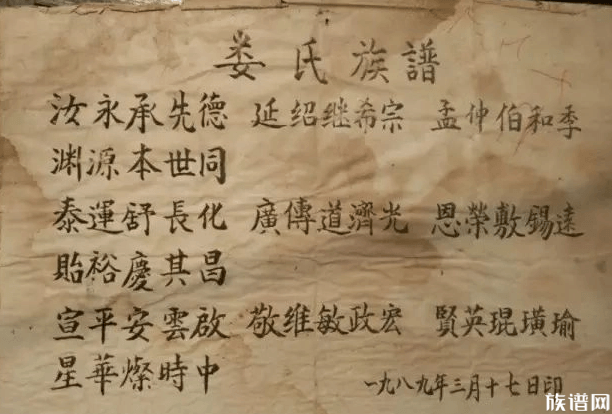 娄氏族譜
汝永承先德 延绍继希宗 孟仲伯和季
渊源本世同
泰運舒長化 廣傳道濟光 恩榮敷錫遠
貽裕慶其昌
宣平安雲啟 敬维敏政宏 賢英琨璜瑜
星華燦時中
一九八九年三月十七日印
族谱网